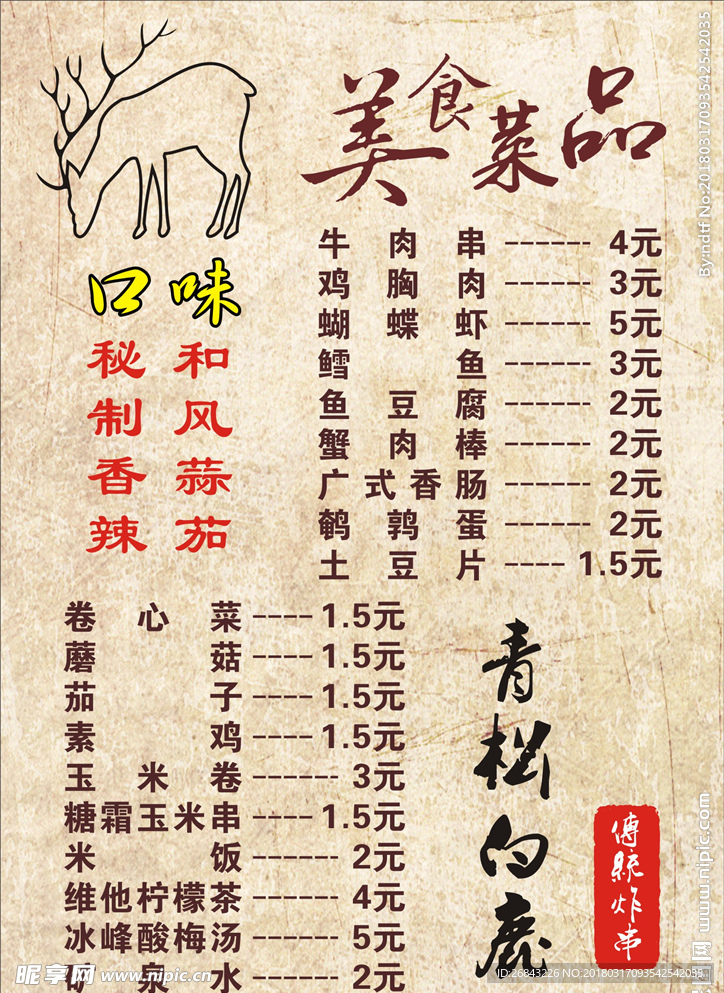 美食菜品
牛肉串 ------ 4元
鸡胸肉 ------ 3元
蝴蝶虾 ------ 5元
鳕鱼 ------ 3元
鱼豆腐 ------ 2元
蟹肉棒 ------ 2元
广式香肠 ------ 2元
鹌鹑蛋 ------ 2元
土豆片 ---- 1.5元
口味
秘制香辣
和风蒜茄
卷心菜 ---- 1.5元
蘑菇 ---- 1.5元
茄子 ---- 1.5元
素鸡 ---- 1.5元
玉米卷 ------ 3元
糖霜玉米串 ---- 1.5元
米饭 ------ 2元
维他柠檬茶 ------ 4元
冰峰酸梅汤 ------ 5元
矿泉水 ------ 2元
青松白鹿
傳統炸串
By:ndtf No:20180317093542542035
昵享网 www.nipic.cn
www.nipic.com
ID:26843226 NO:20180317093542542035